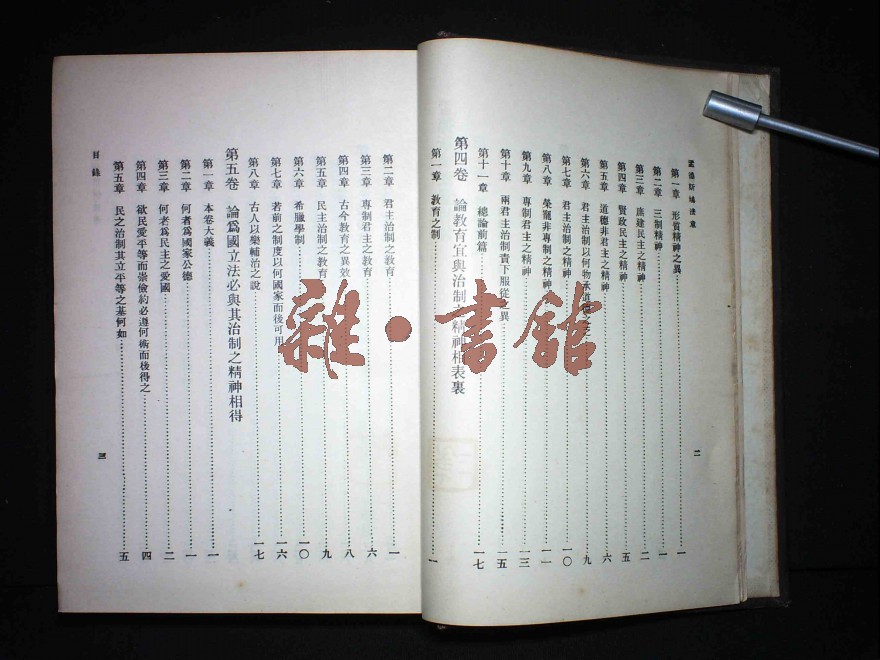 孟德斯鳩法意
第一章 形質精神之異 一
第二章 三制精神 一
第三章 庶建民主之精神 二
第四章 賢政民主之精神 五
第五章 道德非君主之精神 六
第六章 君主治制以何物承道德之乏 九
第七章 君主治制之精神 一〇
第八章 榮寵非專制之精神 一一
第九章 專制君主之精神 一三
第十章 兩君主治制責下服從之異 一五
第十一章 總論前篇 一七
第四卷 論教育宜與治制之精神相表裏
第一章 教育之制 一
二
第二章 君主治制之教育 一
第三章 專制君主之教育 六
第四章 古今教育之異效 八
第五章 民主治制之教育 九
第六章 希臘學制 一〇
第七章 若前之制度以何國家而後可用 一六
第八章 古人以樂輔治之說 一七
第五卷 論爲國立法必與其治制之精神相得
第一章 本卷大義 一
第二章 何者爲國家公德 一
第三章 何者爲民主之愛國 二
第四章 欲民愛平等而崇儉約必遵何術而後得之 四
第五章 民之治制其立平等之基何如 五
目錄
三
雜·書館